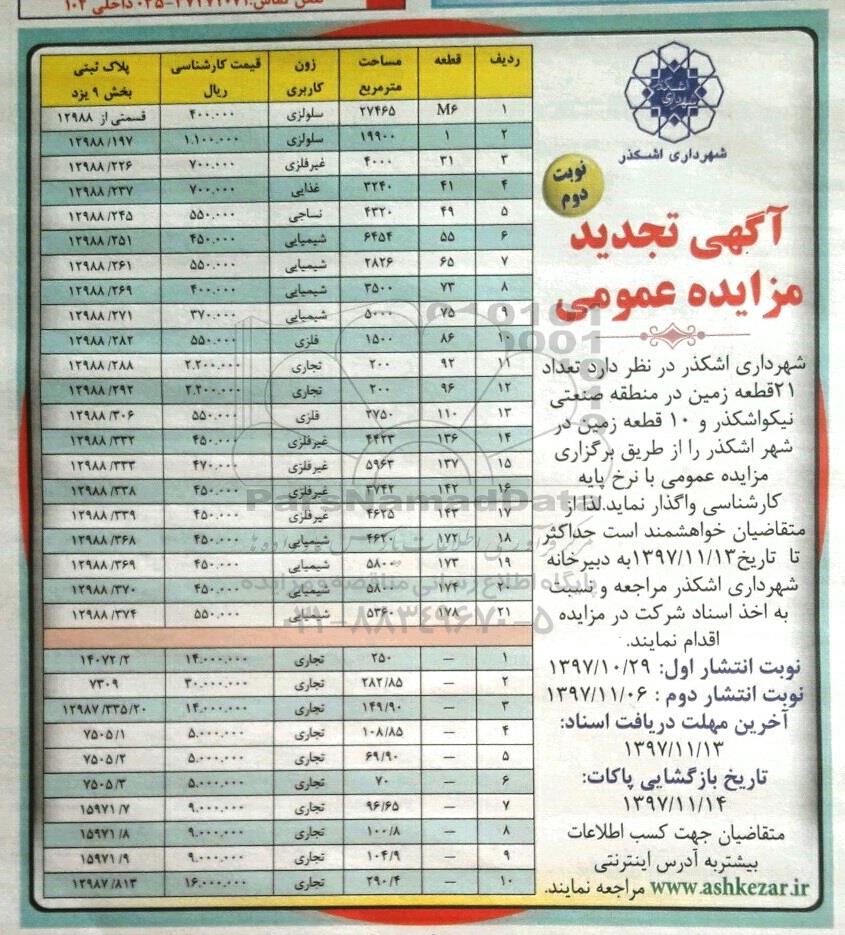 تلفن تماس: ۳۷۲۷۲۰۷۱-۰۳۵ داخلی ۱۰۴
اشکذر
شهرداری
شهرداری اشکذر
نوبت
دوم
آگهی تجدید
مزایده عمومی
شهرداری اشکذر در نظر دارد تعداد
۲۱قطعه زمین در منطقه صنعتی
نیکواشکذر و ۱۰ قطعه زمین در
شهر اشکذر را از طریق برگزاری
مزایده عمومی با نرخ پایه
کارشناسی واگذار نماید.لذا از
متقاضیان خواهشمند است حداکثر
تا تاریخ۱۳۹۷/۱۱/۱۳به دبیرخانه
شهرداری اشکذر مراجعه و نسبت
به اخذ اسناد شرکت در مزایده
اقدام نمایند.
نوبت انتشار اول: ۱۳۹۷/۱۰/۲۹
نوبت انتشار دوم : ۱۳۹۷/۱۱/۰۶
آخرین مهلت دریافت اسناد:
۱۳۹۷/۱۱/۱۳
تاریخ بازگشایی پاکات:
۱۳۹۷/۱۱/۱۴
متقاضیان جهت کسب اطلاعات
بیشتربه آدرس اینترنتی
www.ashkezar.ir مراجعه نمایند.
ردیف قطعه مساحت مترمربع زون کاربری قیمت کارشناسی ریال پلاک ثبتی بخش ۹ یزد
۱ M۶ ۲۷۴۶۵ سلولزی ۴۰۰.۰۰۰ قسمتی از ۱۲۹۸۸
۲ ۱ ۱۹۹۰۰ سلولزی ۱.۱۰۰.۰۰۰ ۱۲۹۸۸/۱۹۷
۳ ۳۱ ۴۰۰۰ غیرفلزی ۷۰۰.۰۰۰ ۱۲۹۸۸/۲۲۶
۴ ۴۱ ۳۲۴۰ غذایی ۷۰۰.۰۰۰ ۱۲۹۸۸/۲۳۷
۵ ۴۹ ۴۳۲۰ نساجی ۵۵۰.۰۰۰ ۱۲۹۸۸/۲۴۵
۶ ۵۵ ۶۴۵۴ شیمیایی ۴۵۰.۰۰۰ ۱۲۹۸۸/۲۵۱
۷ ۶۵ ۲۸۲۶ شیمیایی ۵۵۰.۰۰۰ ۱۲۹۸۸/۲۶۱
۸ ۷۳ ۳۵۰۰ شیمیایی ۴۰۰.۰۰۰ ۱۲۹۸۸/۲۶۹
۹ ۷۵ ۵۰۰۰ شیمیایی ۳۷۰.۰۰۰ ۱۲۹۸۸/۲۷۱
۱۰ ۸۶ ۱۵۰۰ فلزی ۵۵۰.۰۰۰ ۱۲۹۸۸/۲۸۲
۱۱ ۹۲ ۲۰۰ تجاری ۲.۲۰۰.۰۰۰ ۱۲۹۸۸/۲۸۸
۱۲ ۹۶ ۲۰۰ تجاری ۲.۲۰۰.۰۰۰ ۱۲۹۸۸/۲۹۲
۱۳ ۱۱۰ ۳۷۵۰ فلزی ۵۵۰.۰۰۰ ۱۲۹۸۸/۳۰۶
۱۴ ۱۳۶ ۴۴۲۳ غیرفلزی ۴۵۰.۰۰۰ ۱۲۹۸۸/۳۳۲
۱۵ ۱۳۷ ۵۹۶۳ غیرفلزی ۴۷۰.۰۰۰ ۱۲۹۸۸/۳۳۳
۱۶ ۱۴۲ ۳۷۴۲ غیرفلزی ۴۵۰.۰۰۰ ۱۲۹۸۸/۳۳۸
۱۷ ۱۴۳ ۴۶۲۵ غیرفلزی ۴۵۰.۰۰۰ ۱۲۹۸۸/۳۳۹
۱۸ ۱۷۲ ۴۶۲۰ شیمیایی ۴۵۰.۰۰۰ ۱۲۹۸۸/۳۶۸
۱۹ ۱۷۳ ۵۸۰۰ شیمیایی ۴۵۰.۰۰۰ ۱۲۹۸۸/۳۶۹
۲۰ ۱۷۴ ۵۸۰۰ شیمیایی ۴۵۰.۰۰۰ ۱۲۹۸۸/۳۷۰
۲۱ ۱۷۸ ۵۳۶۰ شیمیایی ۵۵۰.۰۰۰ ۱۲۹۸۸/۳۷۴
۱ — ۲۵۰ تجاری ۱۴.۰۰۰.۰۰۰ ۱۴۰۷۲/۲
۲ — ۲۸۲/۸۵ تجاری ۳۰.۰۰۰.۰۰۰ ۷۳۰۹
۳ — ۱۴۹/۹۰ تجاری ۱۴.۰۰۰.۰۰۰ ۱۲۹۸۷/۳۳۵/۲۰
۴ — ۱۰۸/۸۵ تجاری ۵.۰۰۰.۰۰۰ ۷۵۰۵/۱
۵ — ۶۹/۹۰ تجاری ۵.۰۰۰.۰۰۰ ۷۵۰۵/۲
۶ — ۷۰ تجاری ۵.۰۰۰.۰۰۰ ۷۵۰۵/۳
۷ — ۹۶/۶۵ تجاری ۹.۰۰۰.۰۰۰ ۱۵۹۷۱/۷
۸ — ۱۰۰/۸ تجاری ۹.۰۰۰.۰۰۰ ۱۵۹۷۱/۸
۹ — ۱۰۴/۹ تجاری ۹.۰۰۰.۰۰۰ ۱۵۹۷۱/۹
۱۰ — ۲۹۰/۴ تجاری ۱۶.۰۰۰.۰۰۰ ۱۲۹۸۷/۸۱۳
ParsNamadData
پایگاه اطلاع رسانی مناقصه و مزایده
۰۲۱-۸۸۳۴۹۶۷۰-۵